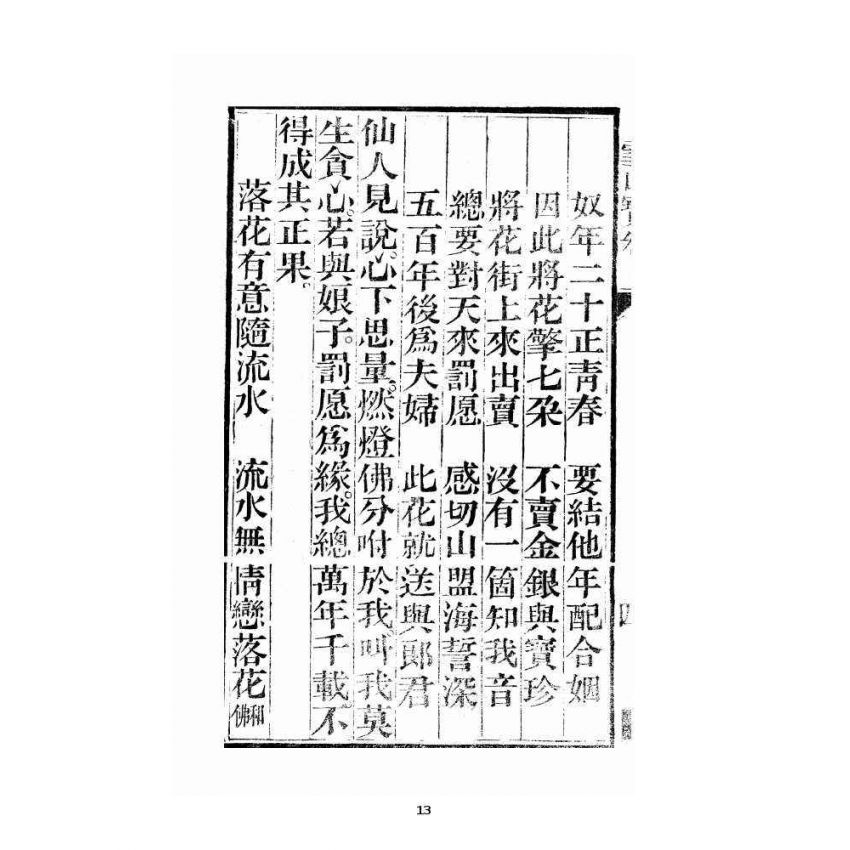 奴年二十正青春　要結他年配合姻
因此將花擎七朶　不賣金銀與寶珍
將花街上來出賣　沒有一箇知我音
總要對天來罰愿　感切山盟海誓深
五百年後爲夫婦　此花就送與郞君
仙人見說。心下思量。燃燈佛分咐於我。叫我莫
生貪心。若與娘子。罰愿爲緣。我總萬年千載不
得成其正果。
落花有意隨流水　流水無情戀落花 和佛
13